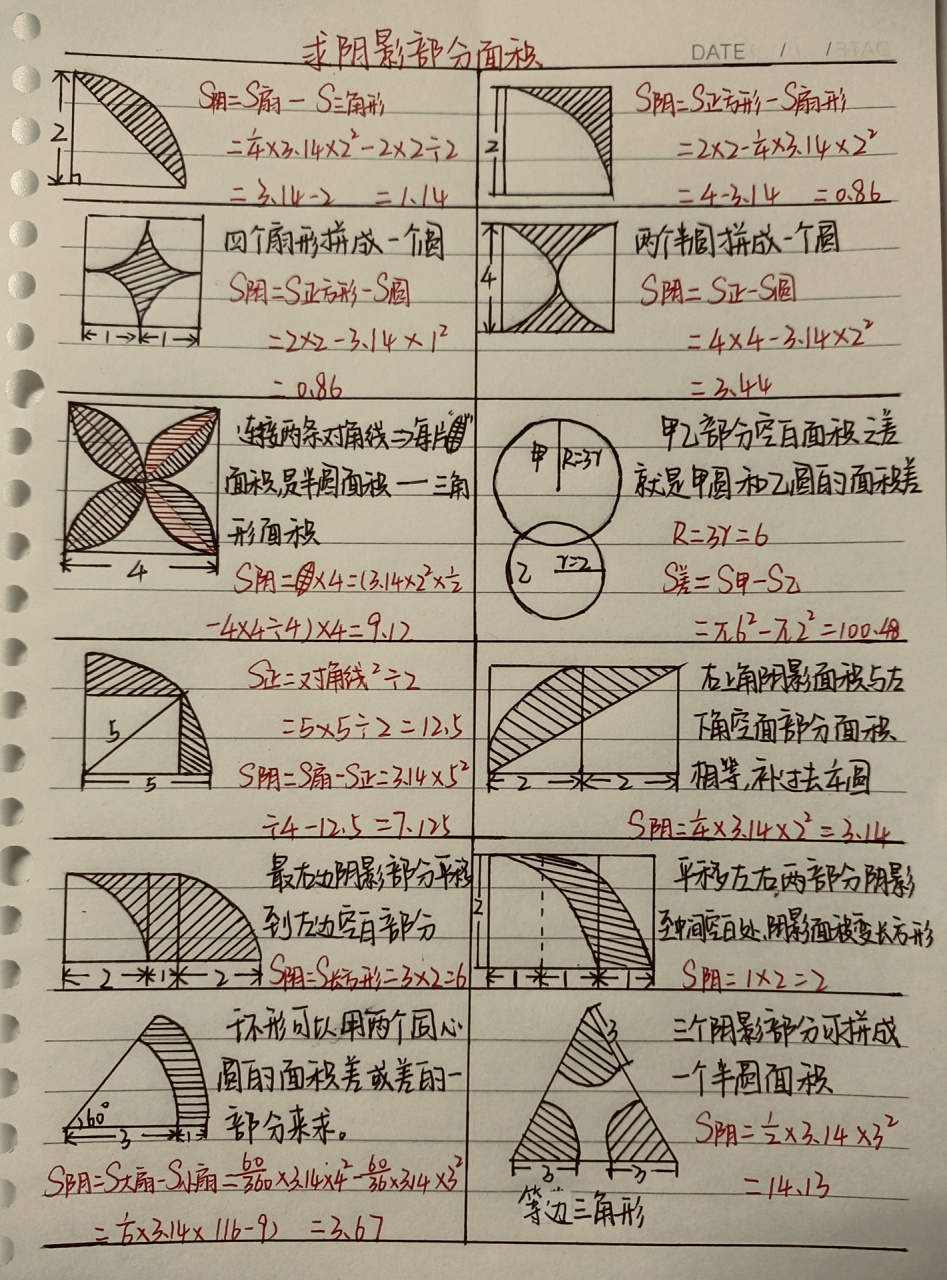 求阴影部分面积
DATE / /
2
S阴=S扇-S三角形
=¼×3.14×2²-2×2÷2
=3.14-2 =1.14
2
S阴=S正方形-S扇形
=2×2-¼×3.14×2²
=4-3.14 =0.86
四个扇形拼成一个圆
S阴=S正方形-S圆
=2×2-3.14×1²
=0.86
1 1
4
两个半圆拼成一个圆
S阴=S正-S圆
=4×4-3.14×2²
=3.44
连接两条对角线⇒每片“ ”
面积是半圆面积一三角
形面积
4
S阴= ×4=(3.14×2²×½
-4×4÷4)×4=9.12
甲 R=3r
乙 r=2
甲乙部分空白面积之差
就是甲圆和乙圆的面积差
R=3r=6
S差=S甲-S乙
=π6²-π2²=100.48
5
5
S正=对角线²÷2
=5×5÷2=12.5
S阴=S扇-S正=3.14×5²
÷4-12.5=7.125
2 2
右上角阴影面积与左
下角空面部分面积
相等,补过去车圆
S阴=¼×3.14×2²=3.14
2 1 2
最右边阴影部分平移
到左边空白部分
S阴=S长方形=3×2=6
2
1 1 1
平移左右,两部分阴影
至中间空白处,阴影面积变长方形
S阴=1×2=2
60°
3 1
环形可以用两个同心
圆的面积差或差的一
部分来求。
S阴=S大扇-S小扇=60/360×3.14×4²-60/36×3.14×3²
=⅙×3.14×(16-9) =3.67
3
3 3
等边三角形
三个阴影部分可拼成
一个半圆面积
S阴=½×3.14×3²
=14.13